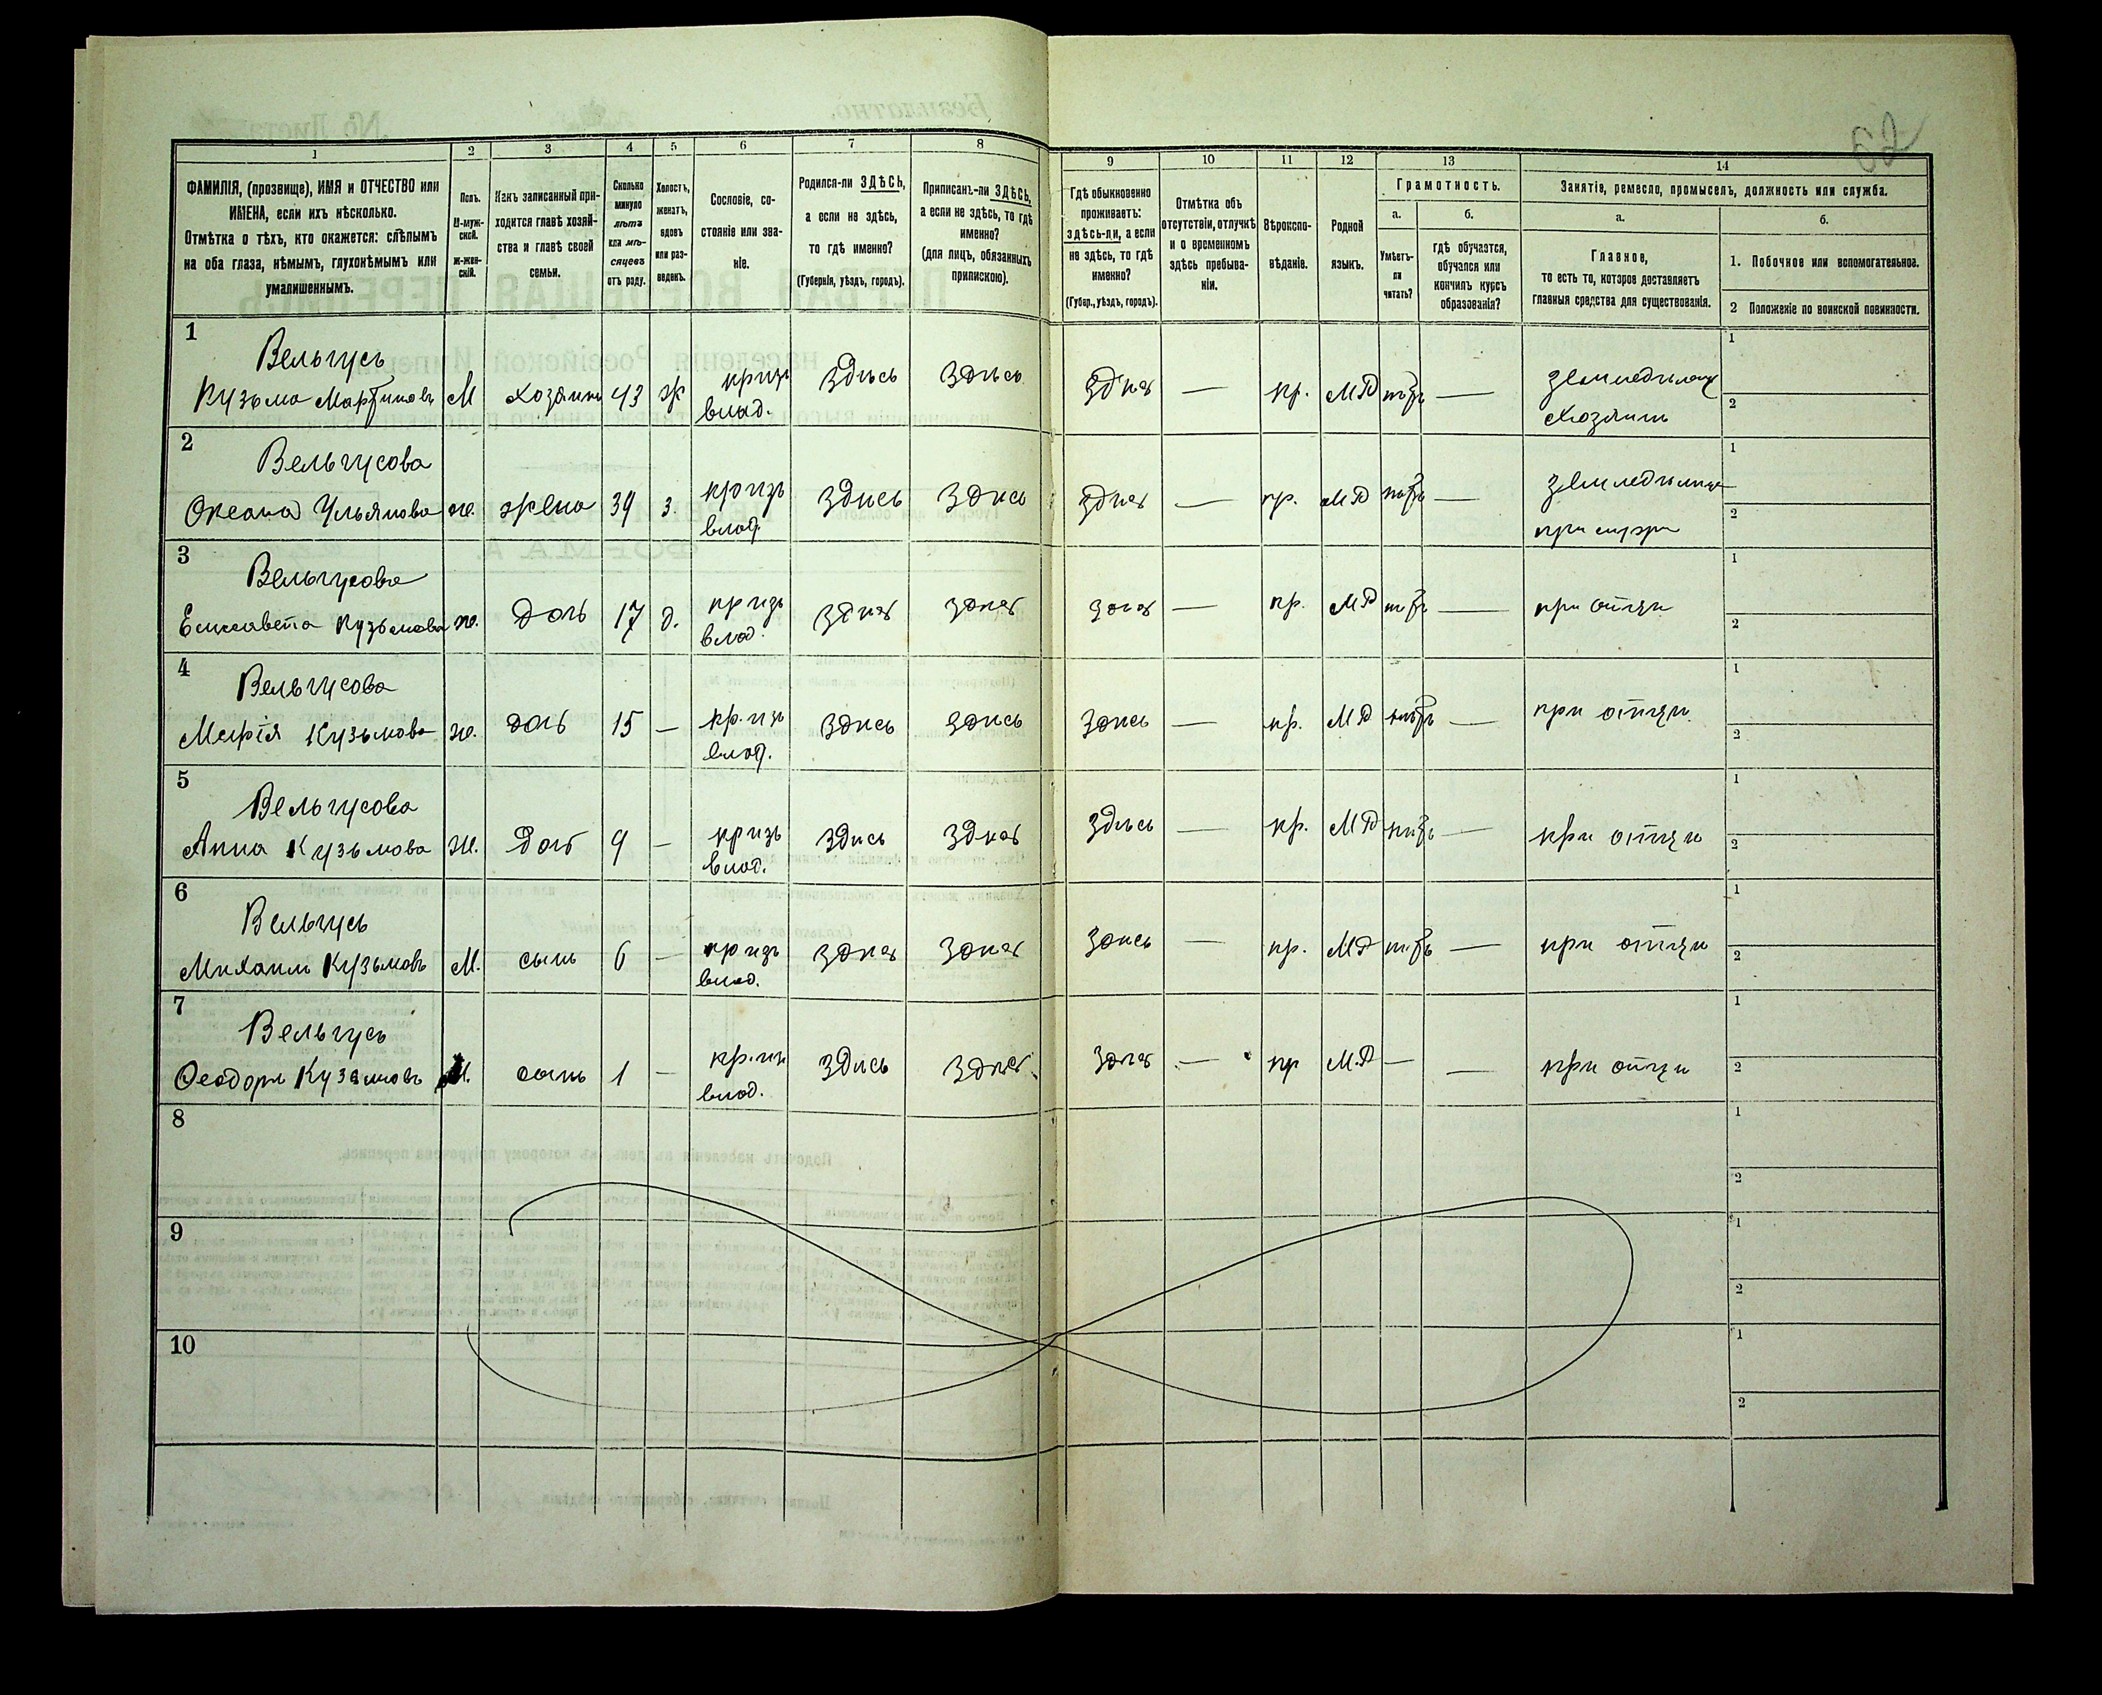 62
1 2 3 4 5 6 7 8 9 10 11 12 13 14
ФАМИЛІЯ, (прозвище), ИМЯ и ОТЧЕСТВО или
ИМЕНА, если ихъ нѣсколько.
Отмѣтка о тѣхъ, кто окажется: слѣпымъ
на оба глаза, нѣмымъ, глухонѣмымъ или
умалишеннымъ.
Полъ.
М-муж-
ской.
ж-жен-
скій.
Какъ записанный при-
ходится главѣ хозяй-
ства и главѣ своей
семьи.
Сколько
минуло
лѣтъ
или мѣ-
сяцевъ
отъ роду.
Холостъ,
женатъ,
вдовъ
или раз-
веденъ.
Сословіе, со-
стояніе или зва-
ніе.
Родился-ли ЗДѢСЬ,
а если не здѣсь,
то гдѣ именно?
(Губернія, уѣздъ, городъ).
Приписанъ-ли ЗДѢСЬ,
а если не здѣсь, то гдѣ
именно?
(для лицъ, обязанныхъ
припискою).
Гдѣ обыкновенно
проживаетъ:
здѣсь-ли, а если
не здѣсь, то гдѣ
именно?
(Губер., уѣздъ, городъ).
Отмѣтка объ
отсутствіи, отлучкѣ
и о временномъ
здѣсь пребыва-
ніи.
Вѣроиспо-
вѣданіе.
Родной
языкъ.
Грамотность.
а.
Умѣетъ-
ли
читать?
б.
гдѣ обучается,
обучался или
кончилъ курсъ
образованія?
Занятіе, ремесло, промыселъ, должность или служба.
а.
Главное,
то есть то, которое доставляетъ
главныя средства для существованія.
б.
1. Побочное или вспомогательное.
2 Положеніе по воинской повинности.
1
Вельгусь
Кузьма Мартиновъ М хозяинъ 43 ж кр. изъ влад. здѣсь здѣсь здѣсь — пр. МР нѣтъ — земледѣлецъ хозяинъ
1
2
2
Вельгусова
Оксана Ульянова ж. жена 39 з. кр. изъ влад. здѣсь здѣсь здѣсь — пр. МР нѣтъ —
при мужѣ
1
2
3
Вельгусова
Елисавета Кузьмова ж. дочь 17 д. кр. изъ влад. здѣсь здѣсь здѣсь — пр. МР нѣтъ — при отцѣ
1
2
4
Вельгусова
Марія Кузьмова ж. дочь 15 — кр. изъ влад. здѣсь здѣсь здѣсь — пр. МР нѣтъ — при отцѣ
1
2
5
Вельгусова
Анна Кузьмова ж. дочь 9 — кр. изъ влад. здѣсь здѣсь здѣсь — пр. МР нѣтъ — при отцѣ
1
2
6
Вельгусь
Михаилъ Кузьмовъ М. сынъ 6 — кр. изъ влад. здѣсь здѣсь здѣсь — пр. МР нѣтъ — при отцѣ
1
2
7
Вельгусь
Ѳеодоръ Кузьмовъ М. сынъ 1 — кр. изъ влад. здѣсь здѣсь здѣсь — пр М.Р — — при отцѣ
1
2
8
1
2
9
1
2
10
1
2